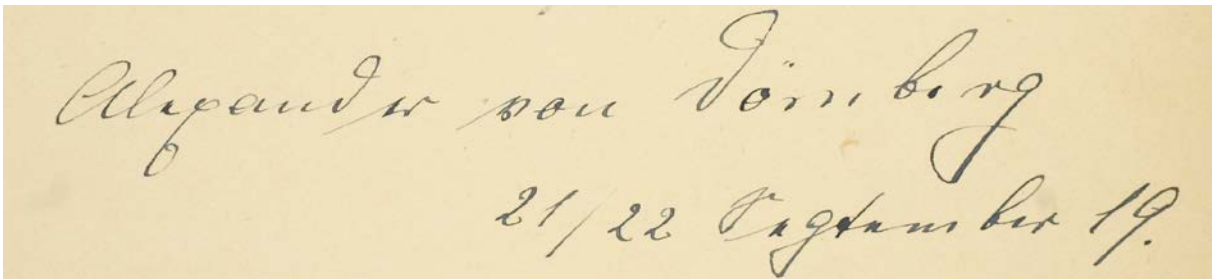 Alexander von Dörnberg
21/22 September 19.